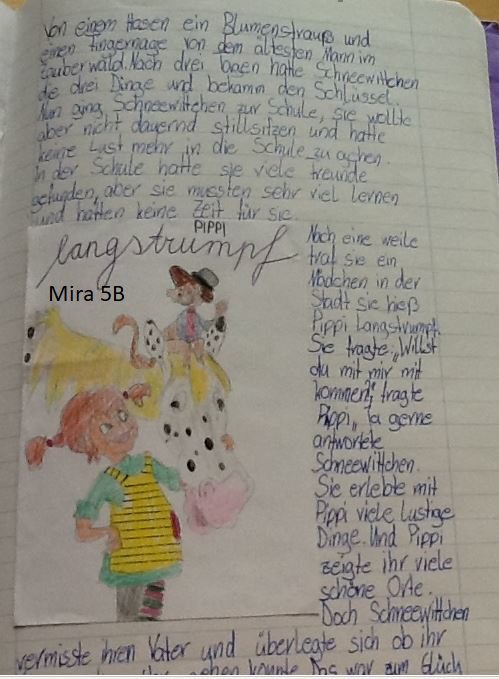 Von einem Hasen ein Blumenstrauß und
einen Fingernage von dem ältesten Mann im
Zauberwald. Nach drei Tagen hatte Schneewittchen
die drei Dinge und bekamm den Schlüssel.
Nun ging Schneewittchen zur Schule, sie wollte
aber nicht dauernd stillsitzen und hatte
keine Lust mehr in die Schule zu gehen.
In der Schule hatte sie viele freunde
gefunden, aber sie mussten sehr viel lernen
und hatten keine Zeit für sie.
PIPPI
langstrumpf
Mira 5B
Nach eine weile
traf sie ein
Mädchen in der
Stadt sie hieß
Pippi Langstrumpf.
Sie fragte „Willst
du mit mir mit
kommen?" fragte
Pippi „Ja gerne
antwortete
Schneewittchen.
Sie erlebte mit
Pippi viele Lustige
Dinge. Und Pippi
zeigte ihr viele
schöne Orte.
Doch Schneewittchen
vermisste ihren Vater und überlegte sich ob ihr
gehen konnte. Das war zum Glück